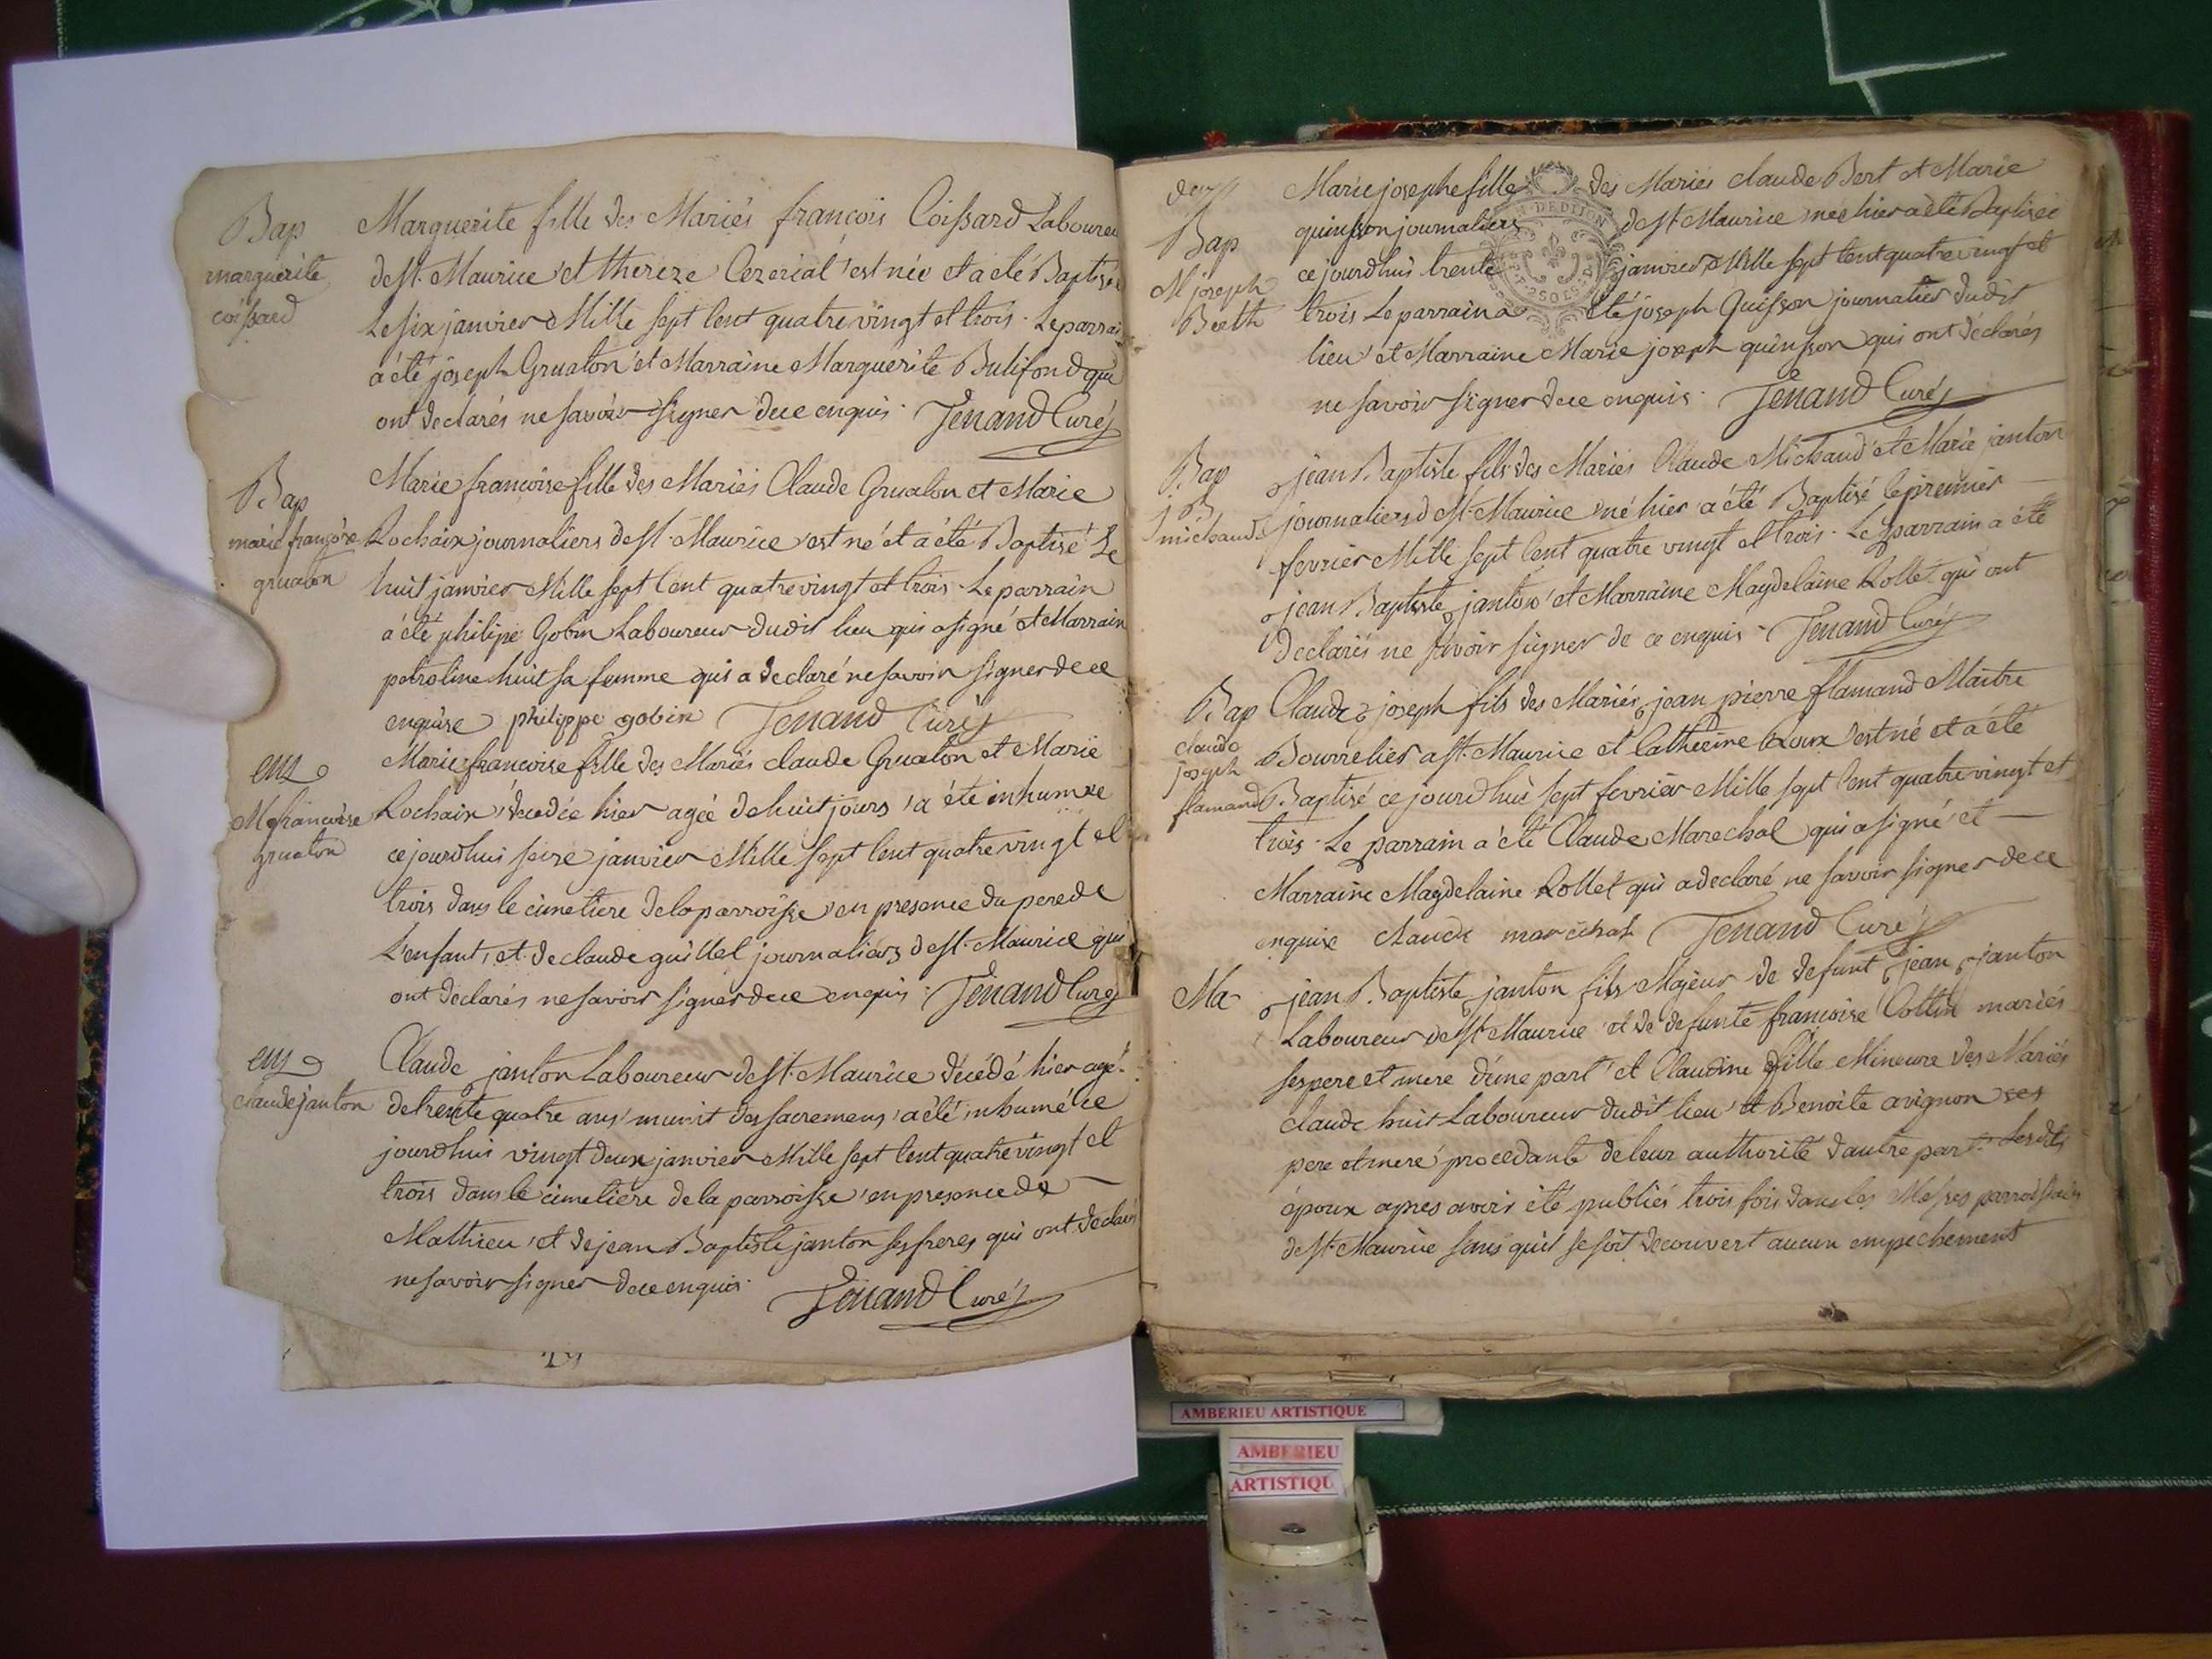 Bap
marguerite
coissard
Marguerite fille des Mariés françois Coissard Laboureu
de St. Maurice et thereze Cezerial est née et a été Baptisée
Le six janvier Mille sept Cent quatre vingt et trois. Le parrain
a été joseph Gruaton et Marraine Marguerite Bulifond qui
ont declarés ne savoir signer de ce enquis. Jenand Curé
Bap
marie françoise
gruaton
Marie francoise fille des Mariés Claude Gruaton et Marie
Rochaix journaliers de St. Maurice est né et a été Baptisé Le
huit janvier Mille sept Cent quatre vingt et trois. Le parrain
a été philipe Gobin Laboureur dudit lieu qui a signé et Marrain
petroline huit sa femme qui a declaré ne savoir signer de ce
enquise philippe gobin Jenand Curé
M francoise
gruaton
Marie francoise fille des Mariés claude Gruaton et Marie
Rochaix décédée hier agée de huit jours a été inhumée
cejourdhui seize janvier Mille sept Cent quatre vingt et
trois dans le cimetiere de la parroisse en presence du pere de
L'enfant, et de claude guillet journaliers de St. Maurice qui
ont déclarés ne savoir signer de ce enquis. Jenand Curé
claude janton
Claude janton Laboureur de St. Maurice décédé hier agé
de trente quatre ans munit des sacremens a été inhumé ce
jourdhui vingt deux janvier Mille sept Cent quatre vingt et
trois dans le cimetiere de la parroisse en presence de
Mathieu et de jean Baptiste janton ses freres qui ont declaré
ne savoir signer de ce enquis. Jenand Curé
Bap
M joseph
Berth
Marie josephe fille des Mariés claude Bert et Marie
quinson journaliers de St. Maurice née hier a été Baptisée
ce jourdhui trente janvier Mille sept Cent quatre vingt et
trois Le parrain a été joseph Quisson journalier dudit
lieu et Marraine Marie joseph quinson qui ont déclarés
ne savoir signer de ce enquis. Jenand Curé
Bap
j B
michaud
jean Baptiste fils des Mariés Claude Michaud et Marie janton
journaliers de St. Maurice né hier a été Baptisé le premier
fevrier Mille sept Cent quatre vingt et trois. Le parrain a été
jean Baptiste janton et Marraine Magdelaine Rollet qui ont
declarés ne savoir signer de ce enquis. Jenand Curé
Bap
claude
joseph
flamand
Claude joseph fils des Mariés jean pierre flamand Maitre
Bourrelier a St. Maurice et Catherine Roux est né et a été
Baptisé ce jourdhui sept fevrier Mille sept Cent quatre vingt et
trois. Le parrain a été Claude Marechal qui a signé et
Marraine Magdelaine Rollet qui a declaré ne savoir signer de ce
enquise claude marechal Jenand Curé
Ma
jean Baptiste janton fils Majeur de defunt jean janton
Laboureur de St. Maurice et de defunte francoise Collin mariés
ses pere et mere d'une part et Claudine fille Mineure des Mariés
claude huit Laboureur dudit lieu et Benoite avignon ses
pere et mere procedante de leur authorité d'autre part. Lesdits
époux apres avoir été publiés trois fois dans les Messes parroissiales
de St. Maurice sans qu'il se soit decouvert aucun empechement
DE DIJON
AMBERIEU ARTISTIQUE
AMBERIEU
ARTISTIQU